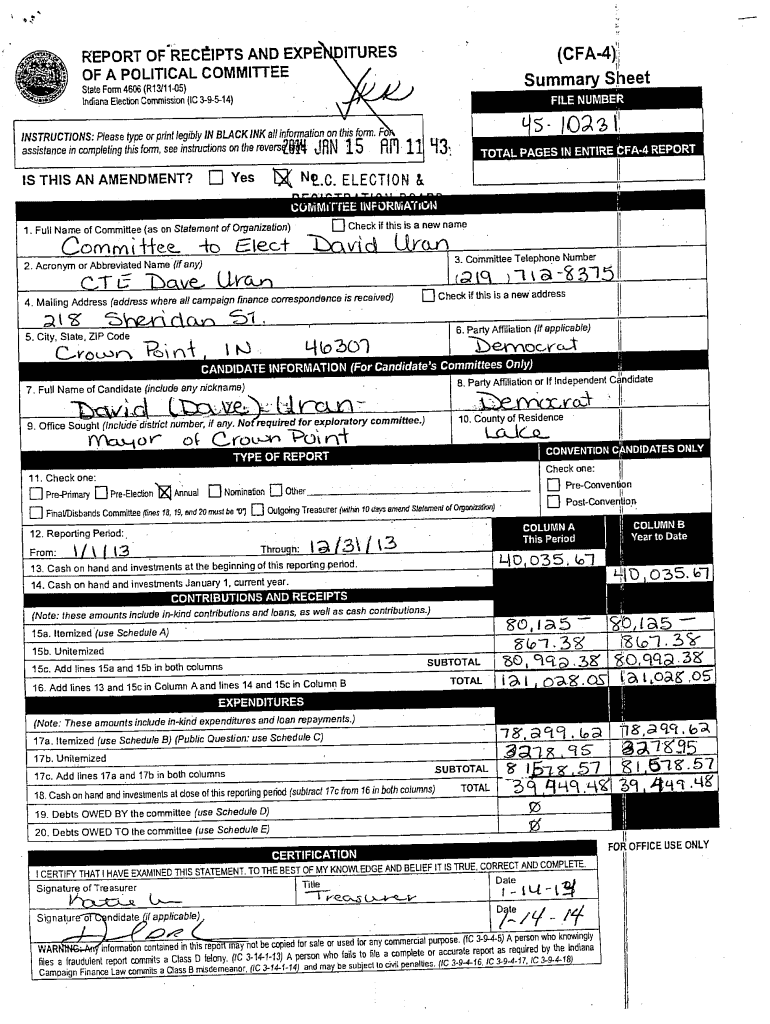 REPORT OF RECEIPTS AND EXPENDITURES
OF A POLITICAL COMMITTEE
State Form 4606 (R13/11-05)
Indiana Election Commission (IC 3-9-5-14)
(CFA-4)
Summary Sheet
FILE NUMBER
45-10231
TOTAL PAGES IN ENTIRE CFA-4 REPORT
INSTRUCTIONS: Please type or print legibly IN BLACK INK all information on this form. For
assistance in completing this form, see instructions on the reverse
2014 JAN 15 AM 11 43
IS THIS AN AMENDMENT? Yes No
L.C. ELECTION &
REGISTRATION BOARD
COMMITTEE INFORMATION
1. Full Name of Committee (as on Statement of Organization) Check if this is a new name
Committee to Elect David Uran
2. Acronym or Abbreviated Name (if any)
CTE Dave Uran
3. Committee Telephone Number
(219) 712-8375
4. Mailing Address (address where all campaign finance correspondence is received) Check if this is a new address
218 Sheridan St.
5. City, State, ZIP Code
Crown Point, IN 46307
6. Party Affiliation (if applicable)
Democrat
CANDIDATE INFORMATION (For Candidate's Committees Only)
7. Full Name of Candidate (include any nickname)
David (Dave) Uran
8. Party Affiliation or If Independent Candidate
Democrat
9. Office Sought (Include district number, if any. Not required for exploratory committee.)
Mayor of Crown Point
10. County of Residence
Lake
TYPE OF REPORT
CONVENTION CANDIDATES ONLY
11. Check one:
Pre-Primary Pre-Election Annual Nomination Other
Final/Disbands Committee (lines 18, 19, and 20 must be "0") Outgoing Treasurer (within 10 days amend Statement of Organization)
Check one:
Pre-Convention
Post-Convention
12. Reporting Period:
From: 1/1/13 Through: 12/31/13
COLUMN A
This Period
COLUMN B
Year to Date
13. Cash on hand and investments at the beginning of this reporting period. 40,035.67
14. Cash on hand and investments January 1, current year. 40,035.67
CONTRIBUTIONS AND RECEIPTS
(Note: these amounts include in-kind contributions and loans, as well as cash contributions.)
15a. Itemized (use Schedule A) 80,125 — 80,125 —
15b. Unitemized 867.38 867.38
15c. Add lines 15a and 15b in both columns SUBTOTAL 80,992.38 80,992.38
16. Add lines 13 and 15c in Column A and lines 14 and 15c in Column B TOTAL 121,028.05 121,028.05
EXPENDITURES
(Note: These amounts include in-kind expenditures and loan repayments.)
17a. Itemized (use Schedule B) (Public Question: use Schedule C) 78,299.62 78,299.62
17b. Unitemized 3278.95 327895
17c. Add lines 17a and 17b in both columns SUBTOTAL 81,578.57 81,578.57
18. Cash on hand and investments at close of this reporting period (subtract 17c from 16 in both columns) TOTAL 39,449.48 39,449.48
19. Debts OWED BY the committee (use Schedule D) Ø
20. Debts OWED TO the committee (use Schedule E) Ø
CERTIFICATION
FOR OFFICE USE ONLY
I CERTIFY THAT I HAVE EXAMINED THIS STATEMENT. TO THE BEST OF MY KNOWLEDGE AND BELIEF IT IS TRUE, CORRECT AND COMPLETE.
Signature of Treasurer
Katie
Title
Treasurer
Date
1-14-14
Signature of Candidate (if applicable)
Date
1-14-14
WARNING: Any information contained in this report may not be copied for sale or used for any commercial purpose. (IC 3-9-4-5) A person who knowingly
files a fraudulent report commits a Class D felony. (IC 3-14-1-13) A person who fails to file a complete or accurate report as required by the Indiana
Campaign Finance Law commits a Class B misdemeanor, (IC 3-14-1-14) and may be subject to civil penalties. (IC 3-9-4-16, IC 3-9-4-17, IC 3-9-4-18)